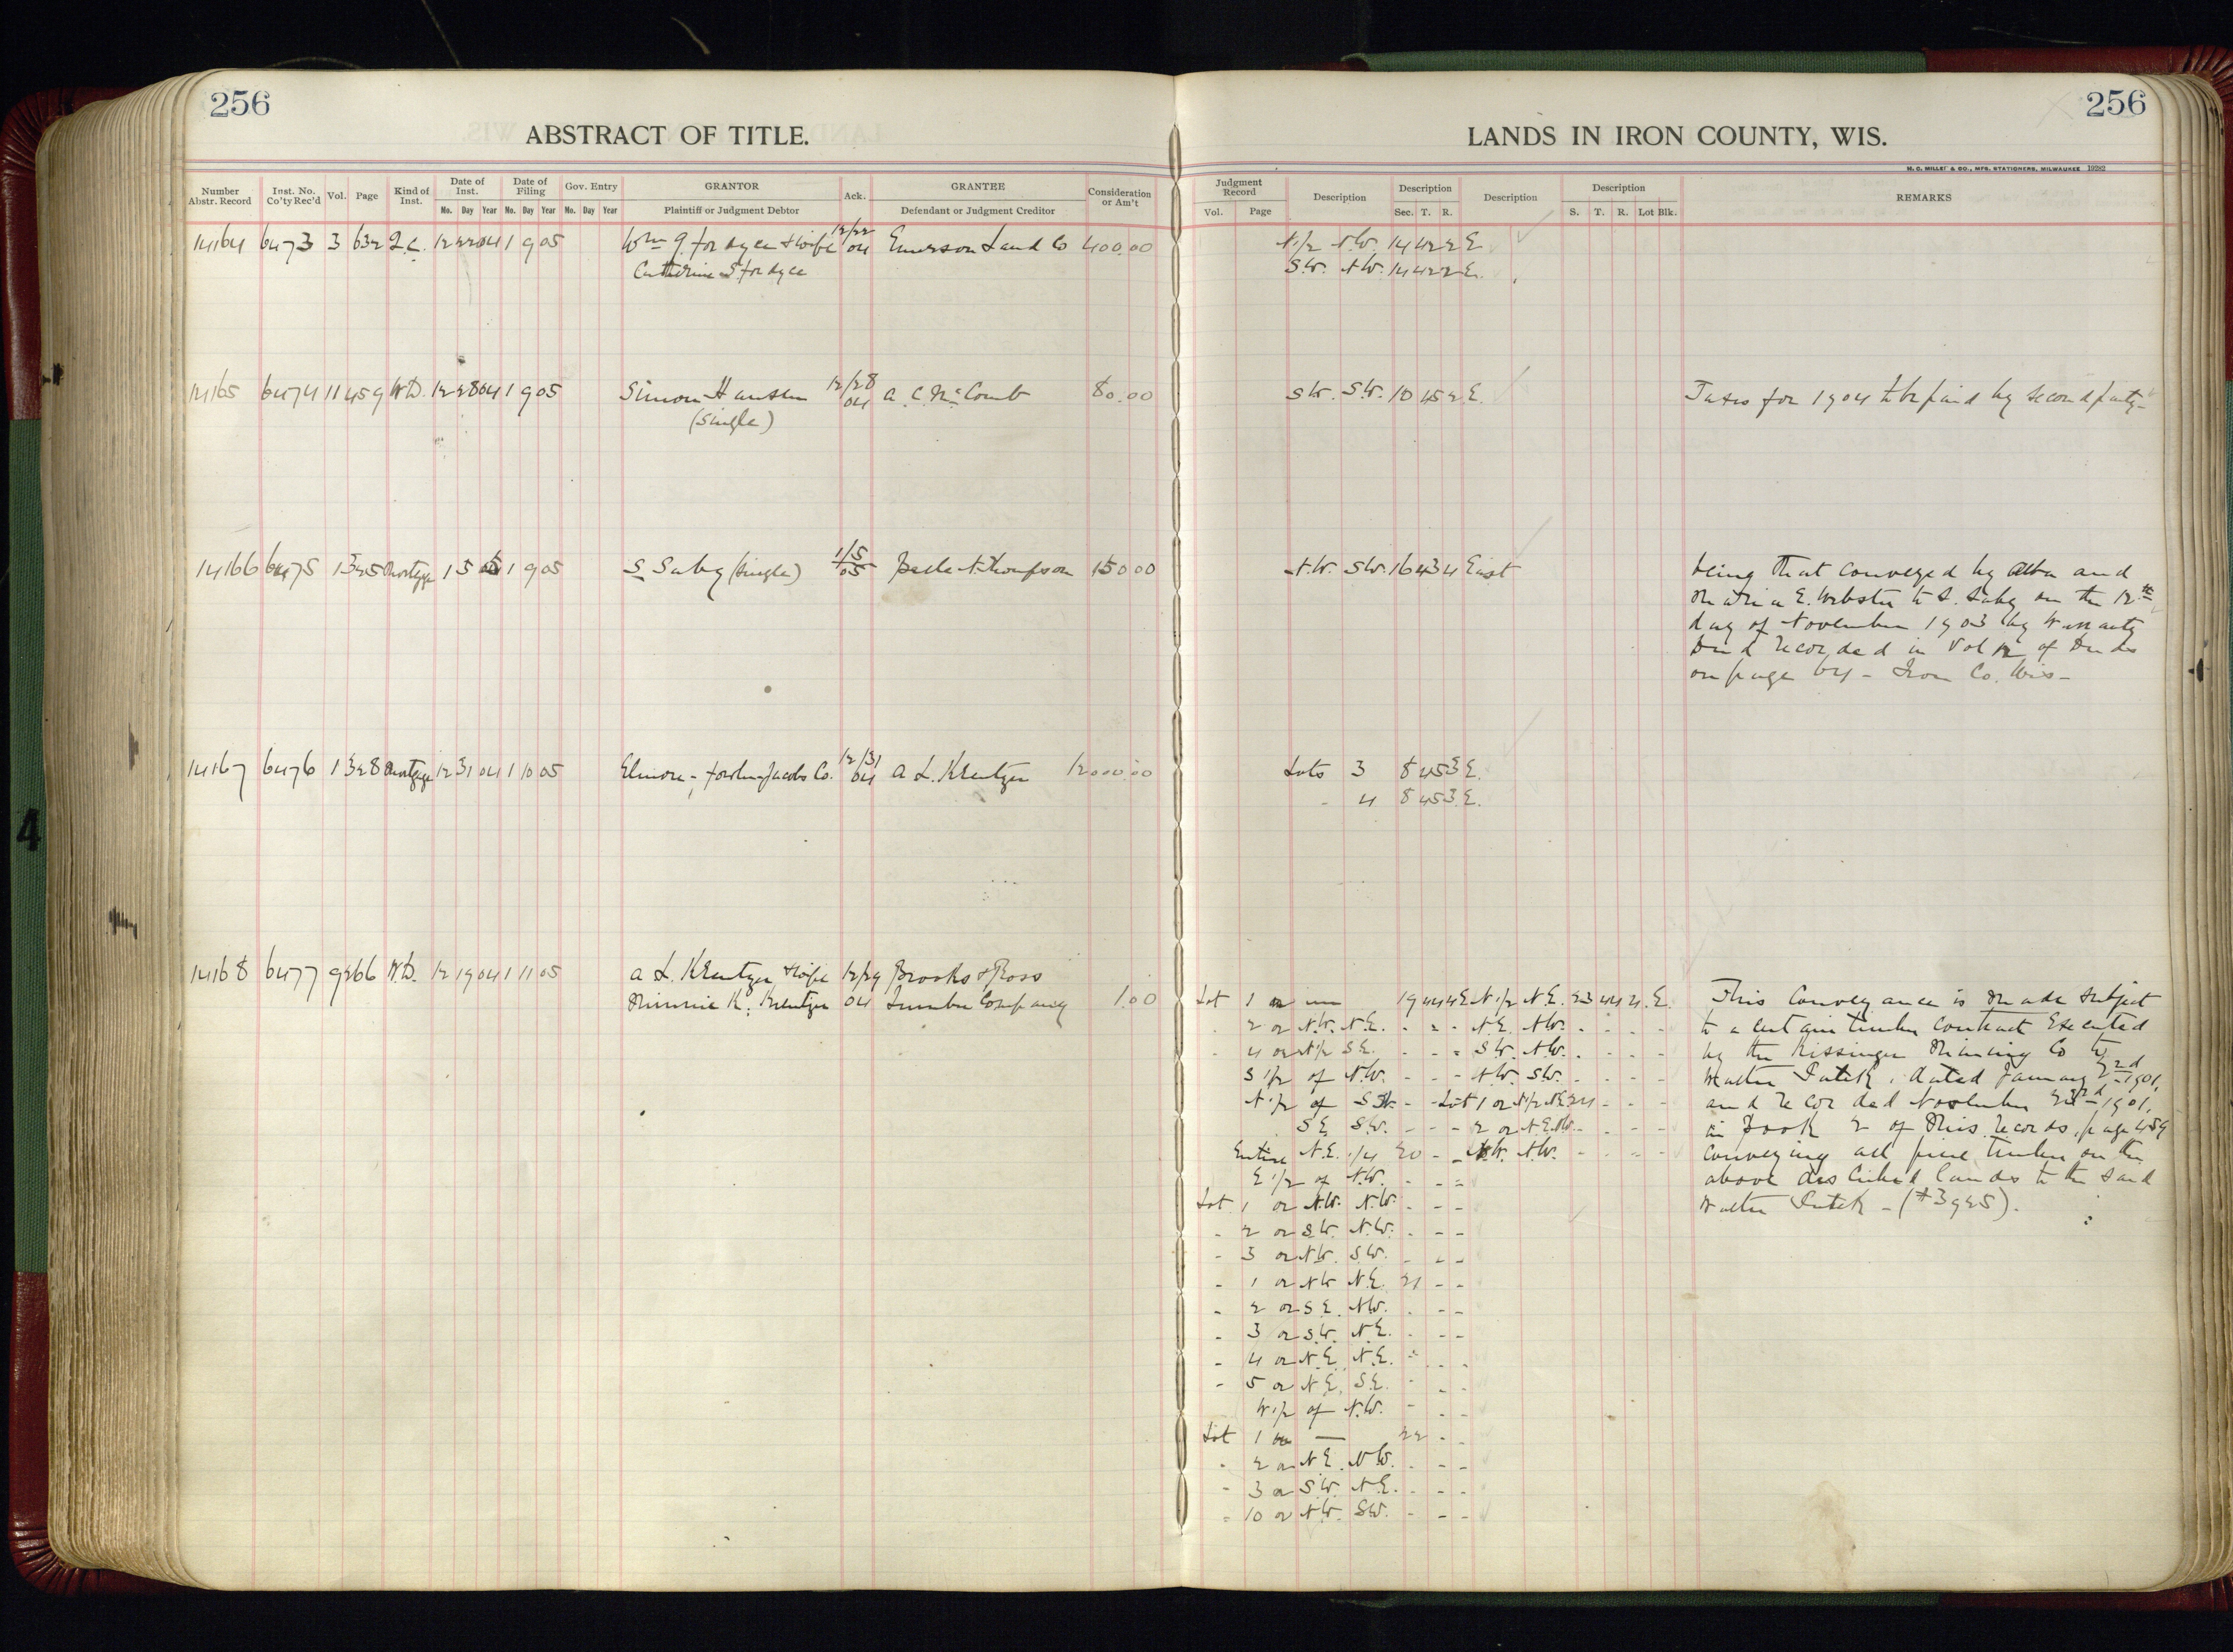 256
256
ABSTRACT OF TITLE.
LANDS IN IRON COUNTY, WIS.
M. C. MILLER & CO., MFG. STATIONERS, MILWAUKEE 19282
Number Abstr. Record Inst. No. Co'ty Rec'd Vol. Page Kind of Inst. Date of Inst. Date of Filing Gov. Entry GRANTOR Ack. GRANTEE Consideration or Am't Judgment Record Description Description Description Description REMARKS
Mo. Day Year No. Day Year Mo. Day Year Plaintiff or Judgment Debtor Defendant or Judgment Creditor Vol. Page Sec. T. R. S. T. R. Lot Blk.
14164 6473 3 632 12 22 04 1 9 05 Wm J. Fordyce & wife 12/22 04 Emerson Land Co 400.00 N1/2 N.W. 14 42 2 E
Catherine S Fordyce S.W. N.W. 14 42 2 E.
14165 6474 11 459 W.D. 12 28 04 1 9 05 Simon Hansen 12/28 04 A. C. McComb 80.00 SW. S.W. 10 45 2 E. Taxes for 1904 to be paid by second party-
(Single)
14166 6475 1 325 Mortgage 1 5 05 1 9 05 S Saby (Single) 1/5 05 N. Thompson 150 00 N.W. S.W. 16 43 4 East being that conveyed by and
E. Webster to S. Saby on the 12th
day of November 1903 by Warranty
Deed recorded in Vol 12 of Deeds
on page 64 - Iron Co. Wis-
14167 6476 1 328 Mortgage 12 31 04 1 10 05 Elmore, Jacobs Co. 12/31 04 A. L. Kreutzer 12000.00 Lots 3 8 45 3 E.
- 4 8 45 3 E.
14168 6477 9 266 W.D. 12 19 04 1 11 05 A. L. Kreutzer & wife 12/29 Brooks & Ross
Minnie K. Kreutzer 04 Lumber Company 1.00 Lot 1 19 44 4 E N 1/2 N.E. 23 44 4. E. This Conveyance is made subject
- 2 or N.W. N.E. - - - N.E. N.W. - - - to a certain timber contract Executed
- 4 or N1/2 S.E. - - - S.W. N.W. - - - by the Kissinger Mining Co to
S 1/2 of N.W. - - - N.W. S.W. - - - Walter dated January 2nd 1901,
N 1/2 of SW. - - Lot 1 or N1/2 NE 24 - - - and recorded November 23rd - 1901,
S.E. S.W. - - - 2 or N.E. N.W. - - - in Book 2 of Misc. records, page 459
Entire N.E. 1/4 20 - - N.W. N.W. - - - conveying all pine timber on the
E 1/2 of N.W. - - - above described lands to the said
Lot 1 or N.W. N.W. - - - Walter - (#3925).
- 2 or S.W. N.W. - - -
- 3 or N.W. S.W. - - -
- 1 or N.W. N.E. 21 - -
- 2 or S.E. N.W. - - -
- 3 or S.W. N.E. - - -
- 4 or N.E. N.E. - - -
- 5 or N.E. S.E. - - -
W 1/2 of N.W. - - -
Lot 1 or — 22 - -
- 2 or N.E. N.W. - - -
- 3 or S.W. N.E. - - -
- 10 or N.W. S.W. - - -
4